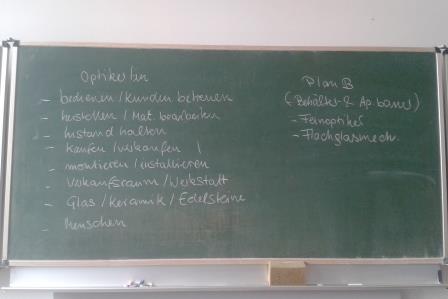 Optiker/in
- bedienen / Kunden betreuen
- herstellen / Mat. bearbeiten
- Instand halten
- kaufen / verkaufen /
- montieren / installieren
- Verkaufsraum / Werkstatt
- Glas / Keramik / Edelsteine
- Menschen
Plan B
(Behälter- & Ap.bauer)
- Feinoptiker
- Flachglasmech.